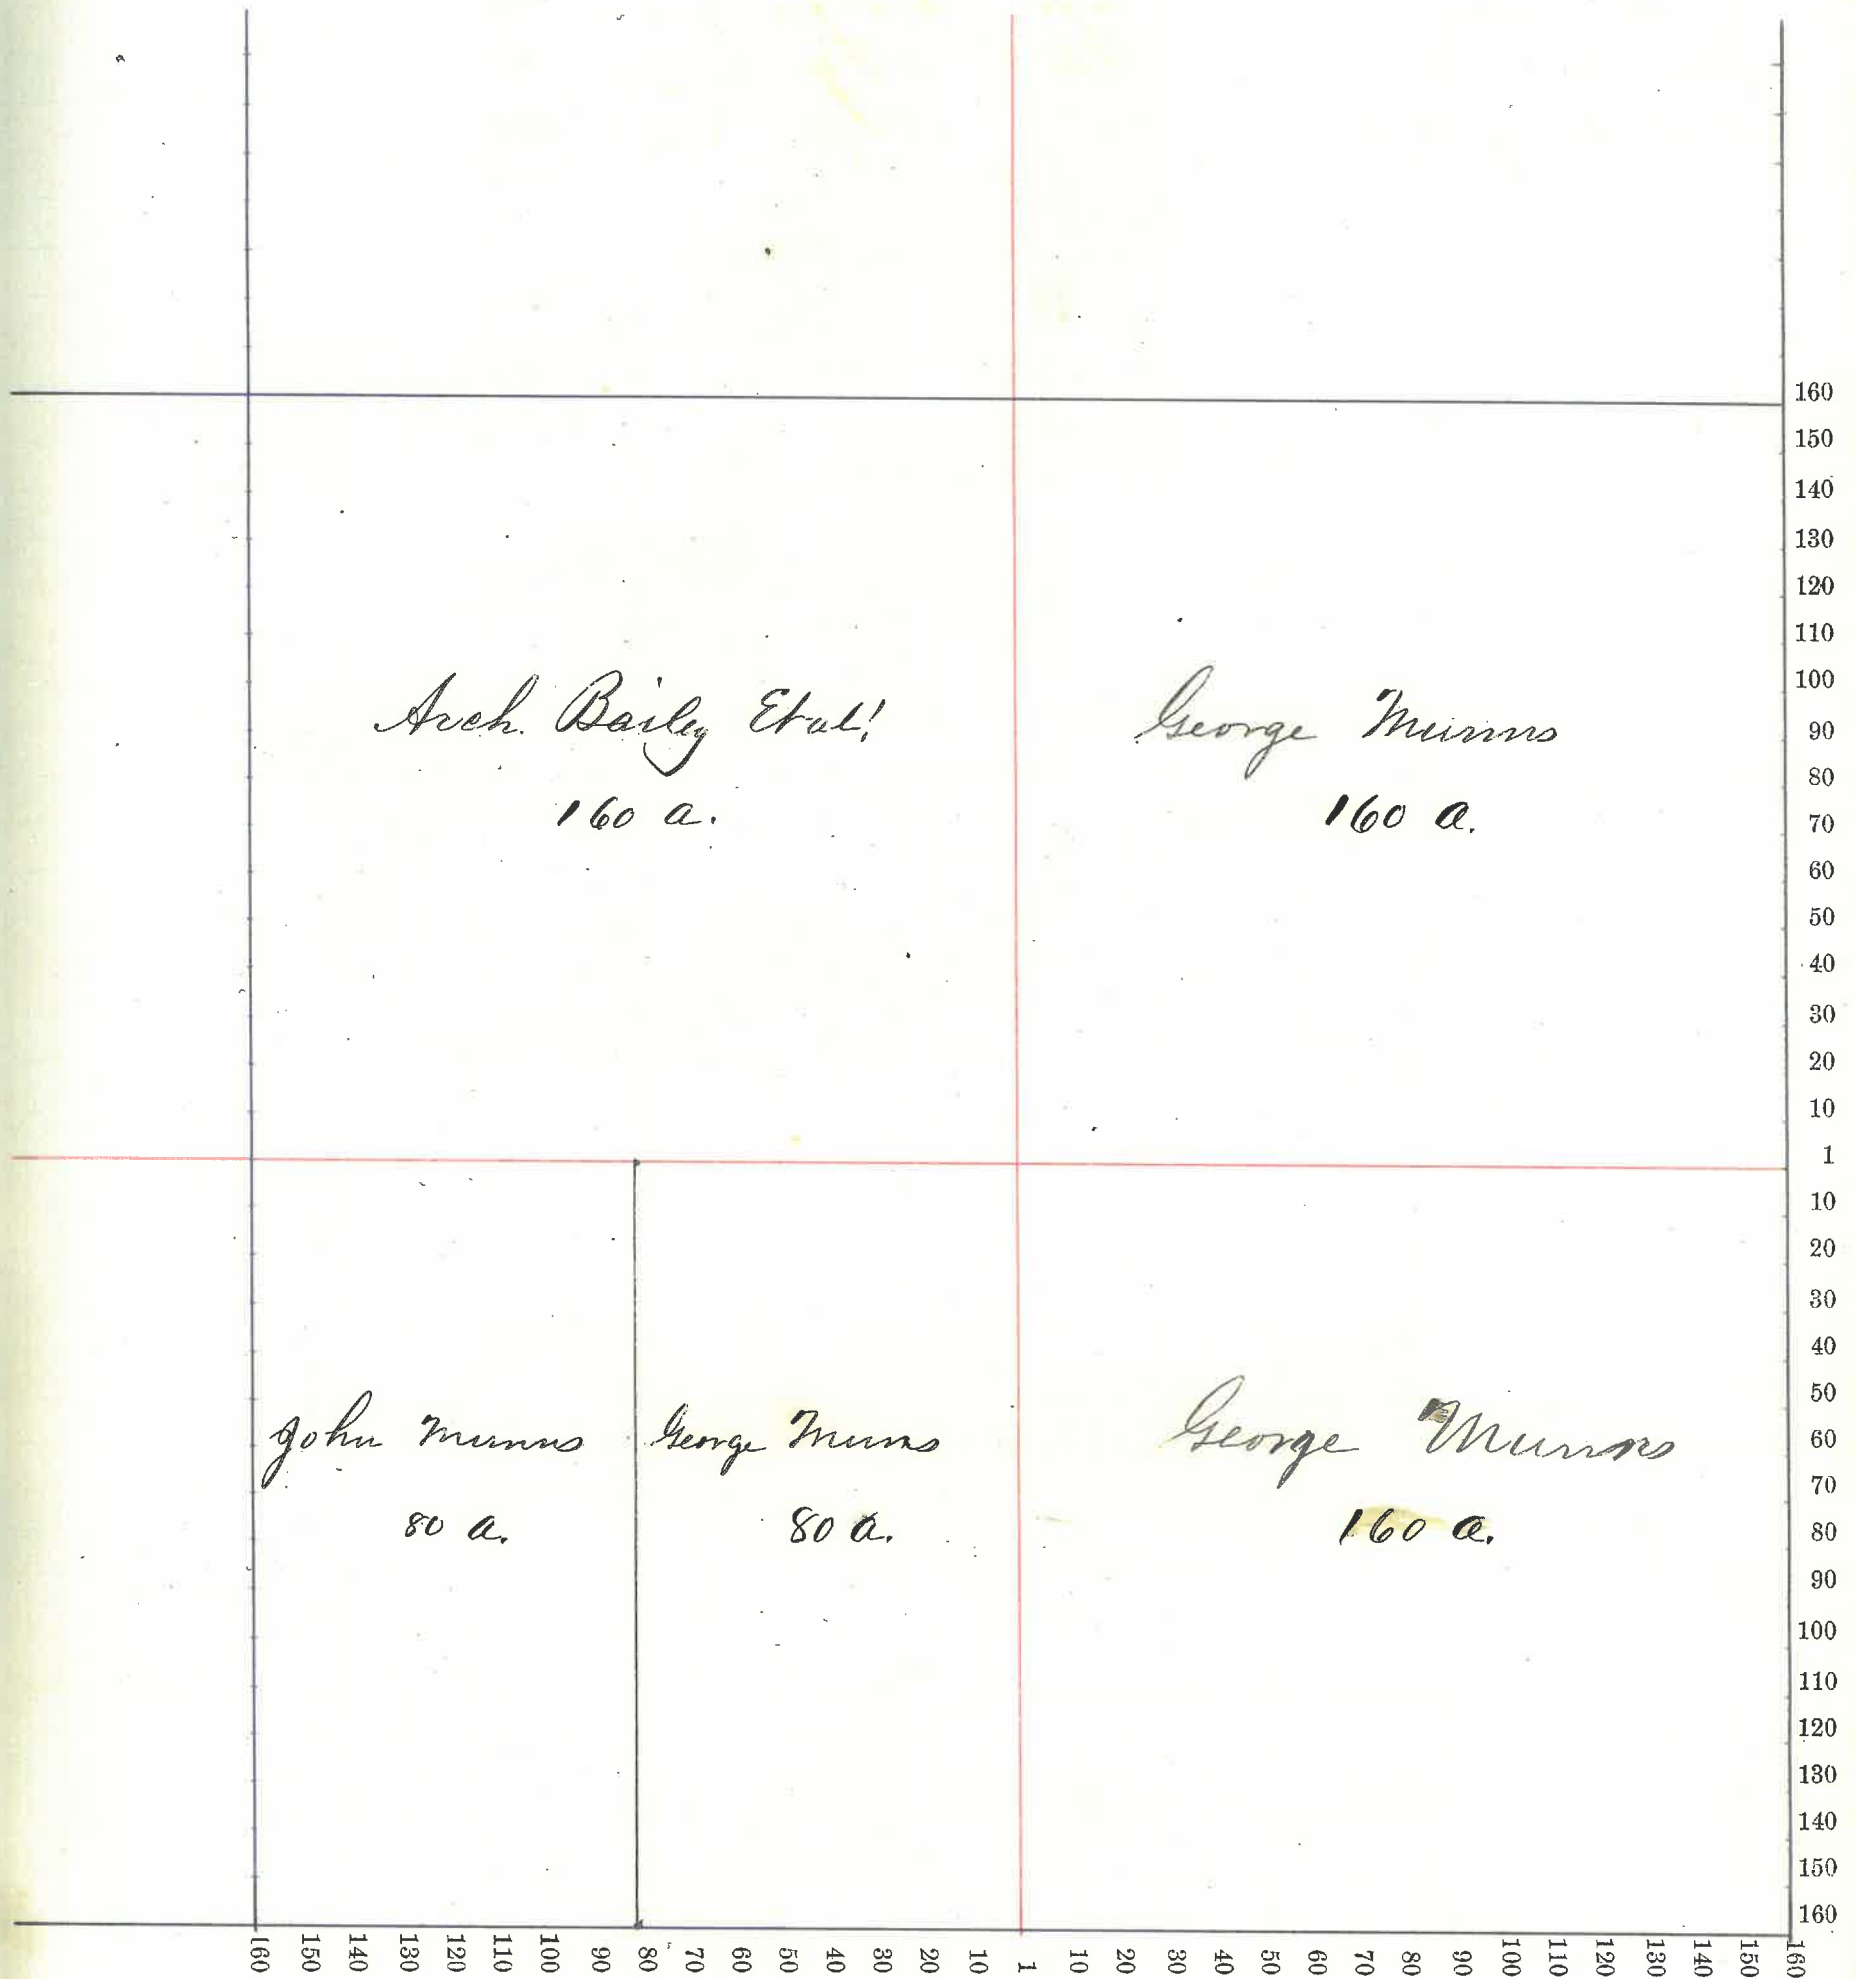 Arch. Bailey Et al!
160 a.
George Munns
160 a.
John Munns
80 a.
George Munns
80 a.
George Munns
160 a.
160
150
140
130
120
110
100
90
80
70
60
50
40
30
20
10
1
10
20
30
40
50
60
70
80
90
100
110
120
130
140
150
160
160 150 140 130 120 110 100 90 80 70 60 50 40 30 20 10 1 10 20 30 40 50 60 70 80 90 100 110 120 130 140 150 160